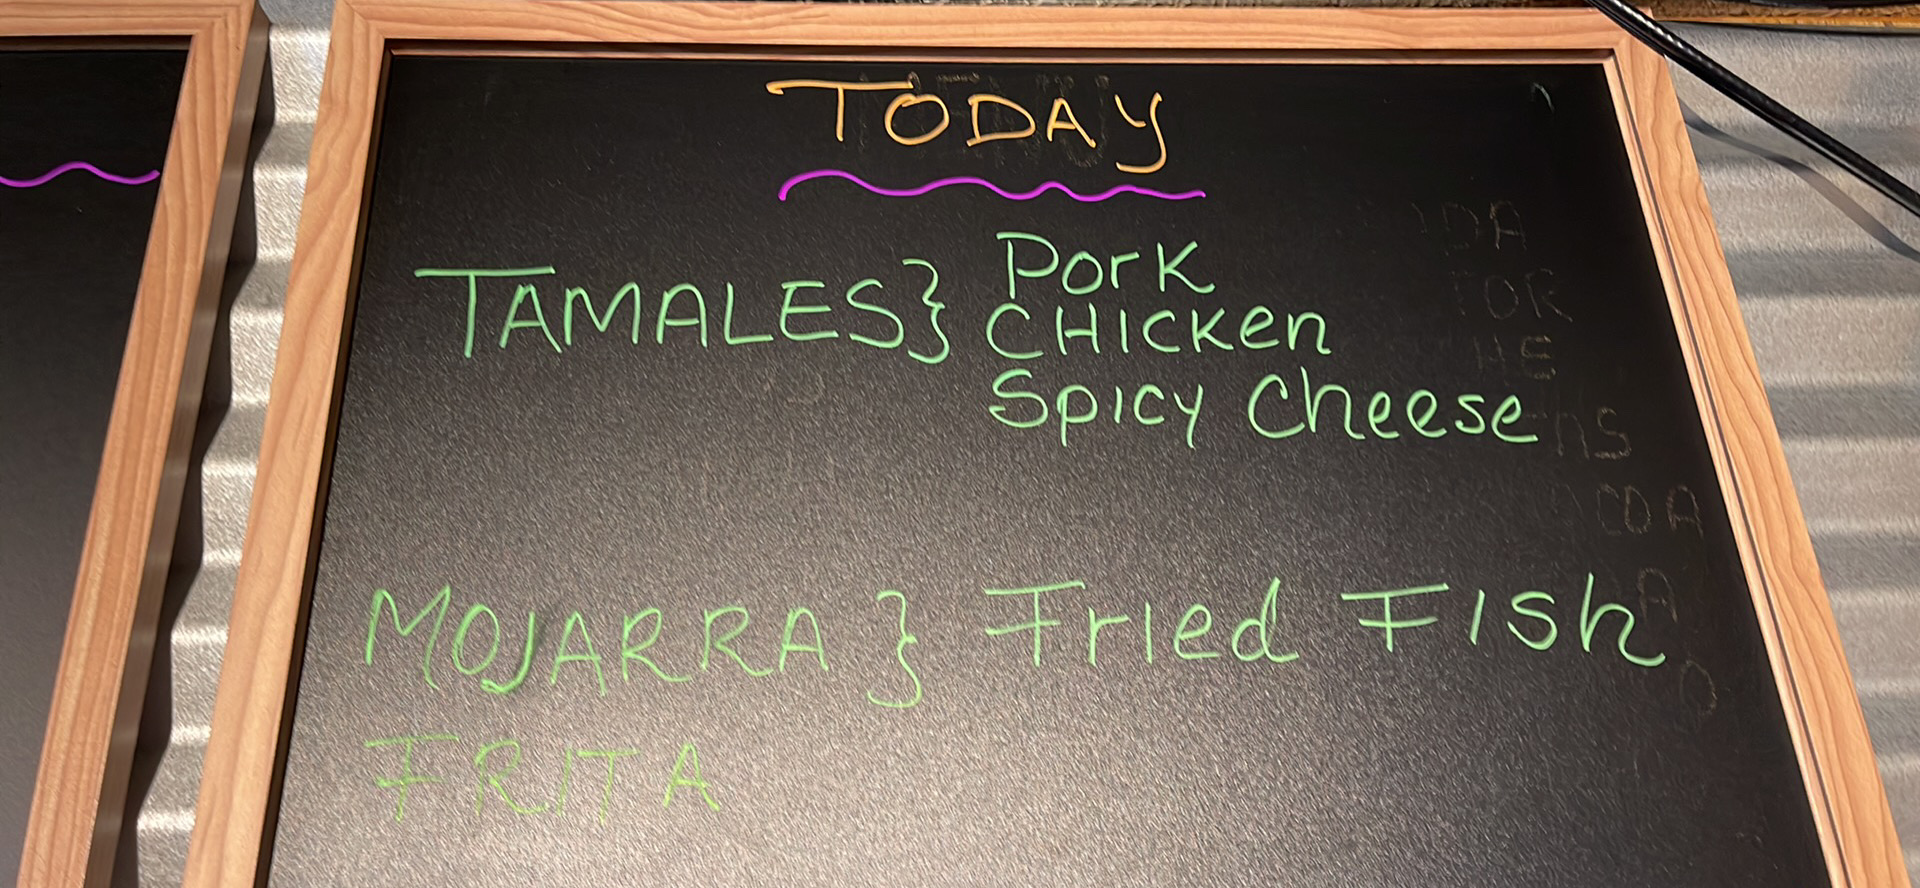 TODAY
TAMALES } Pork
CHICKen
SPICY Cheese
MOJARRA } Fried Fish
FRITA